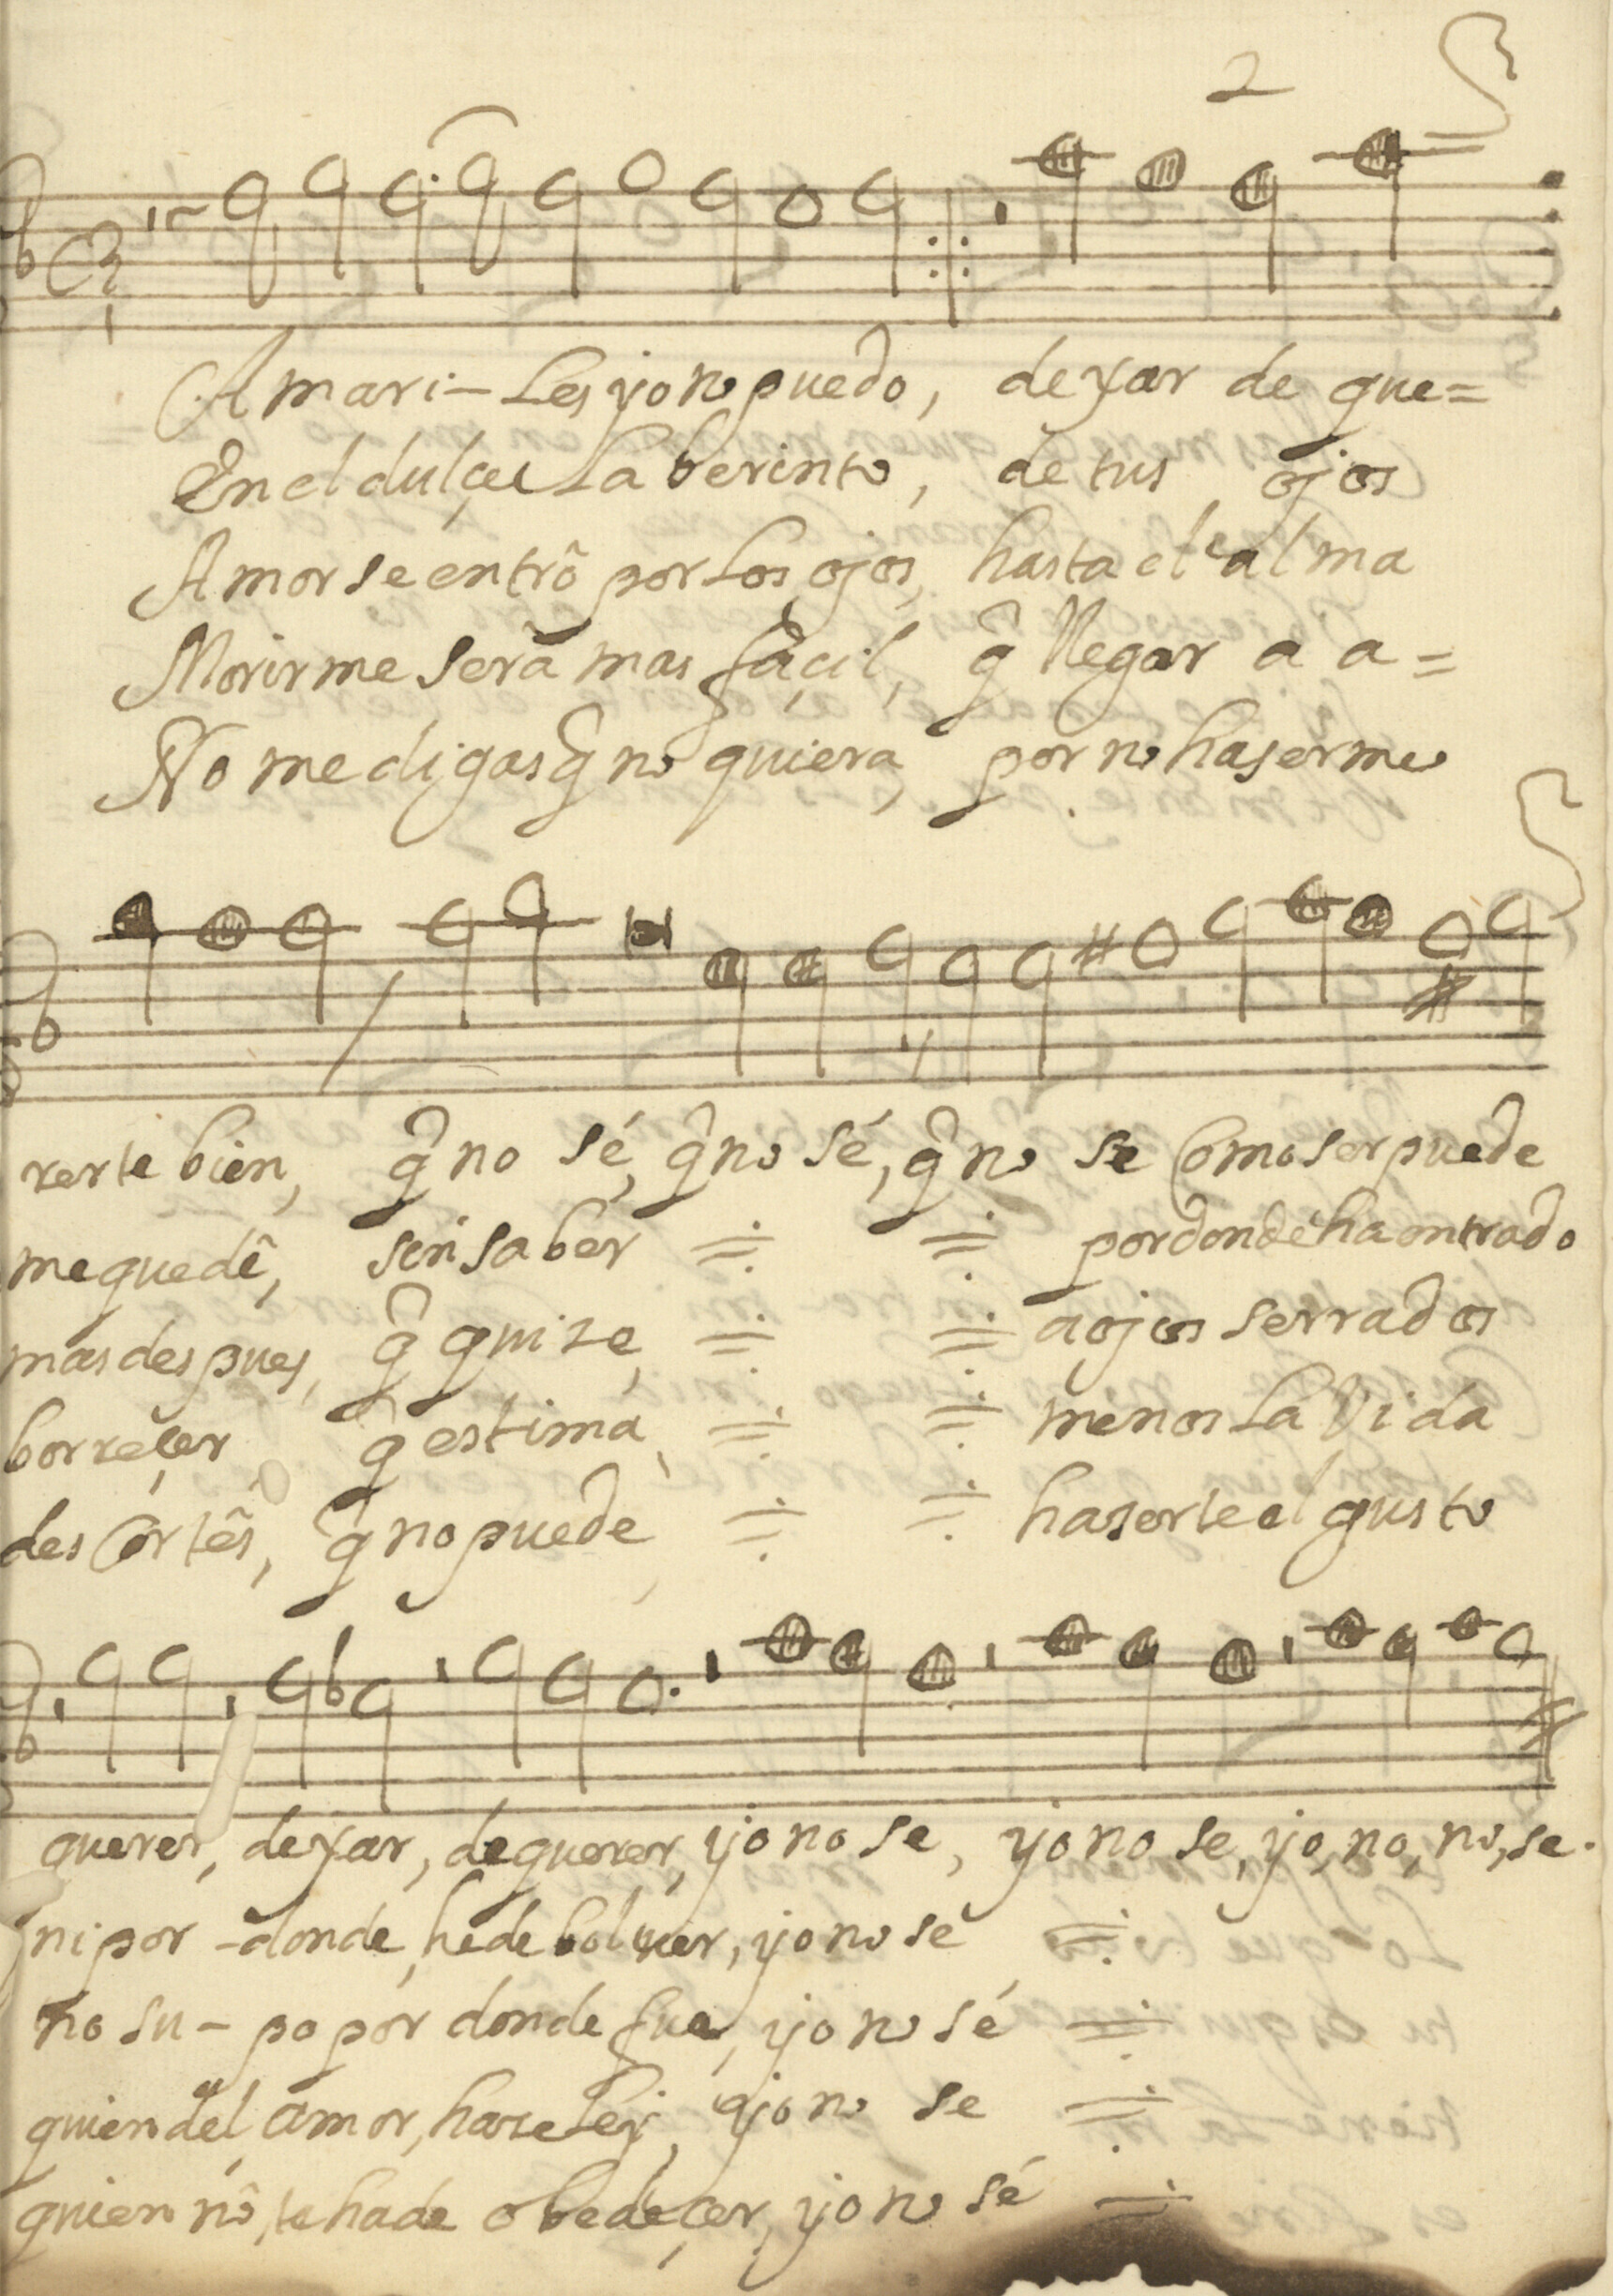 2
Amari-Les yo no puedo, dexar de que=
En el dulçe Laberinto, de tus ojos
Amor se entrô por Los ojos, hasta el alma
Morirme serâ mas façil, q̃ llegar a a=
No me digas q̃ no quiera, por no haserme
rerte bien, q̃ no sé, q̃ no sé, q̃ no se Como ser puede
me quedê, sin saber por donde ha entrado
mas despues, q̃ quize, a ojos serrados
borreçer q̃ estima, menos La Vida
desCortês, q̃ no puede haserte el gusto
querer, dexar, de querer, yo no se, yo no se, yo, no, no, se.
ni por -donde, he de boluer, yo no sé
no su- po por donde fue, yo no sé
quien del amor, haze Ley, yo no se
quien nô, te ha de obedeçer, yo no sé